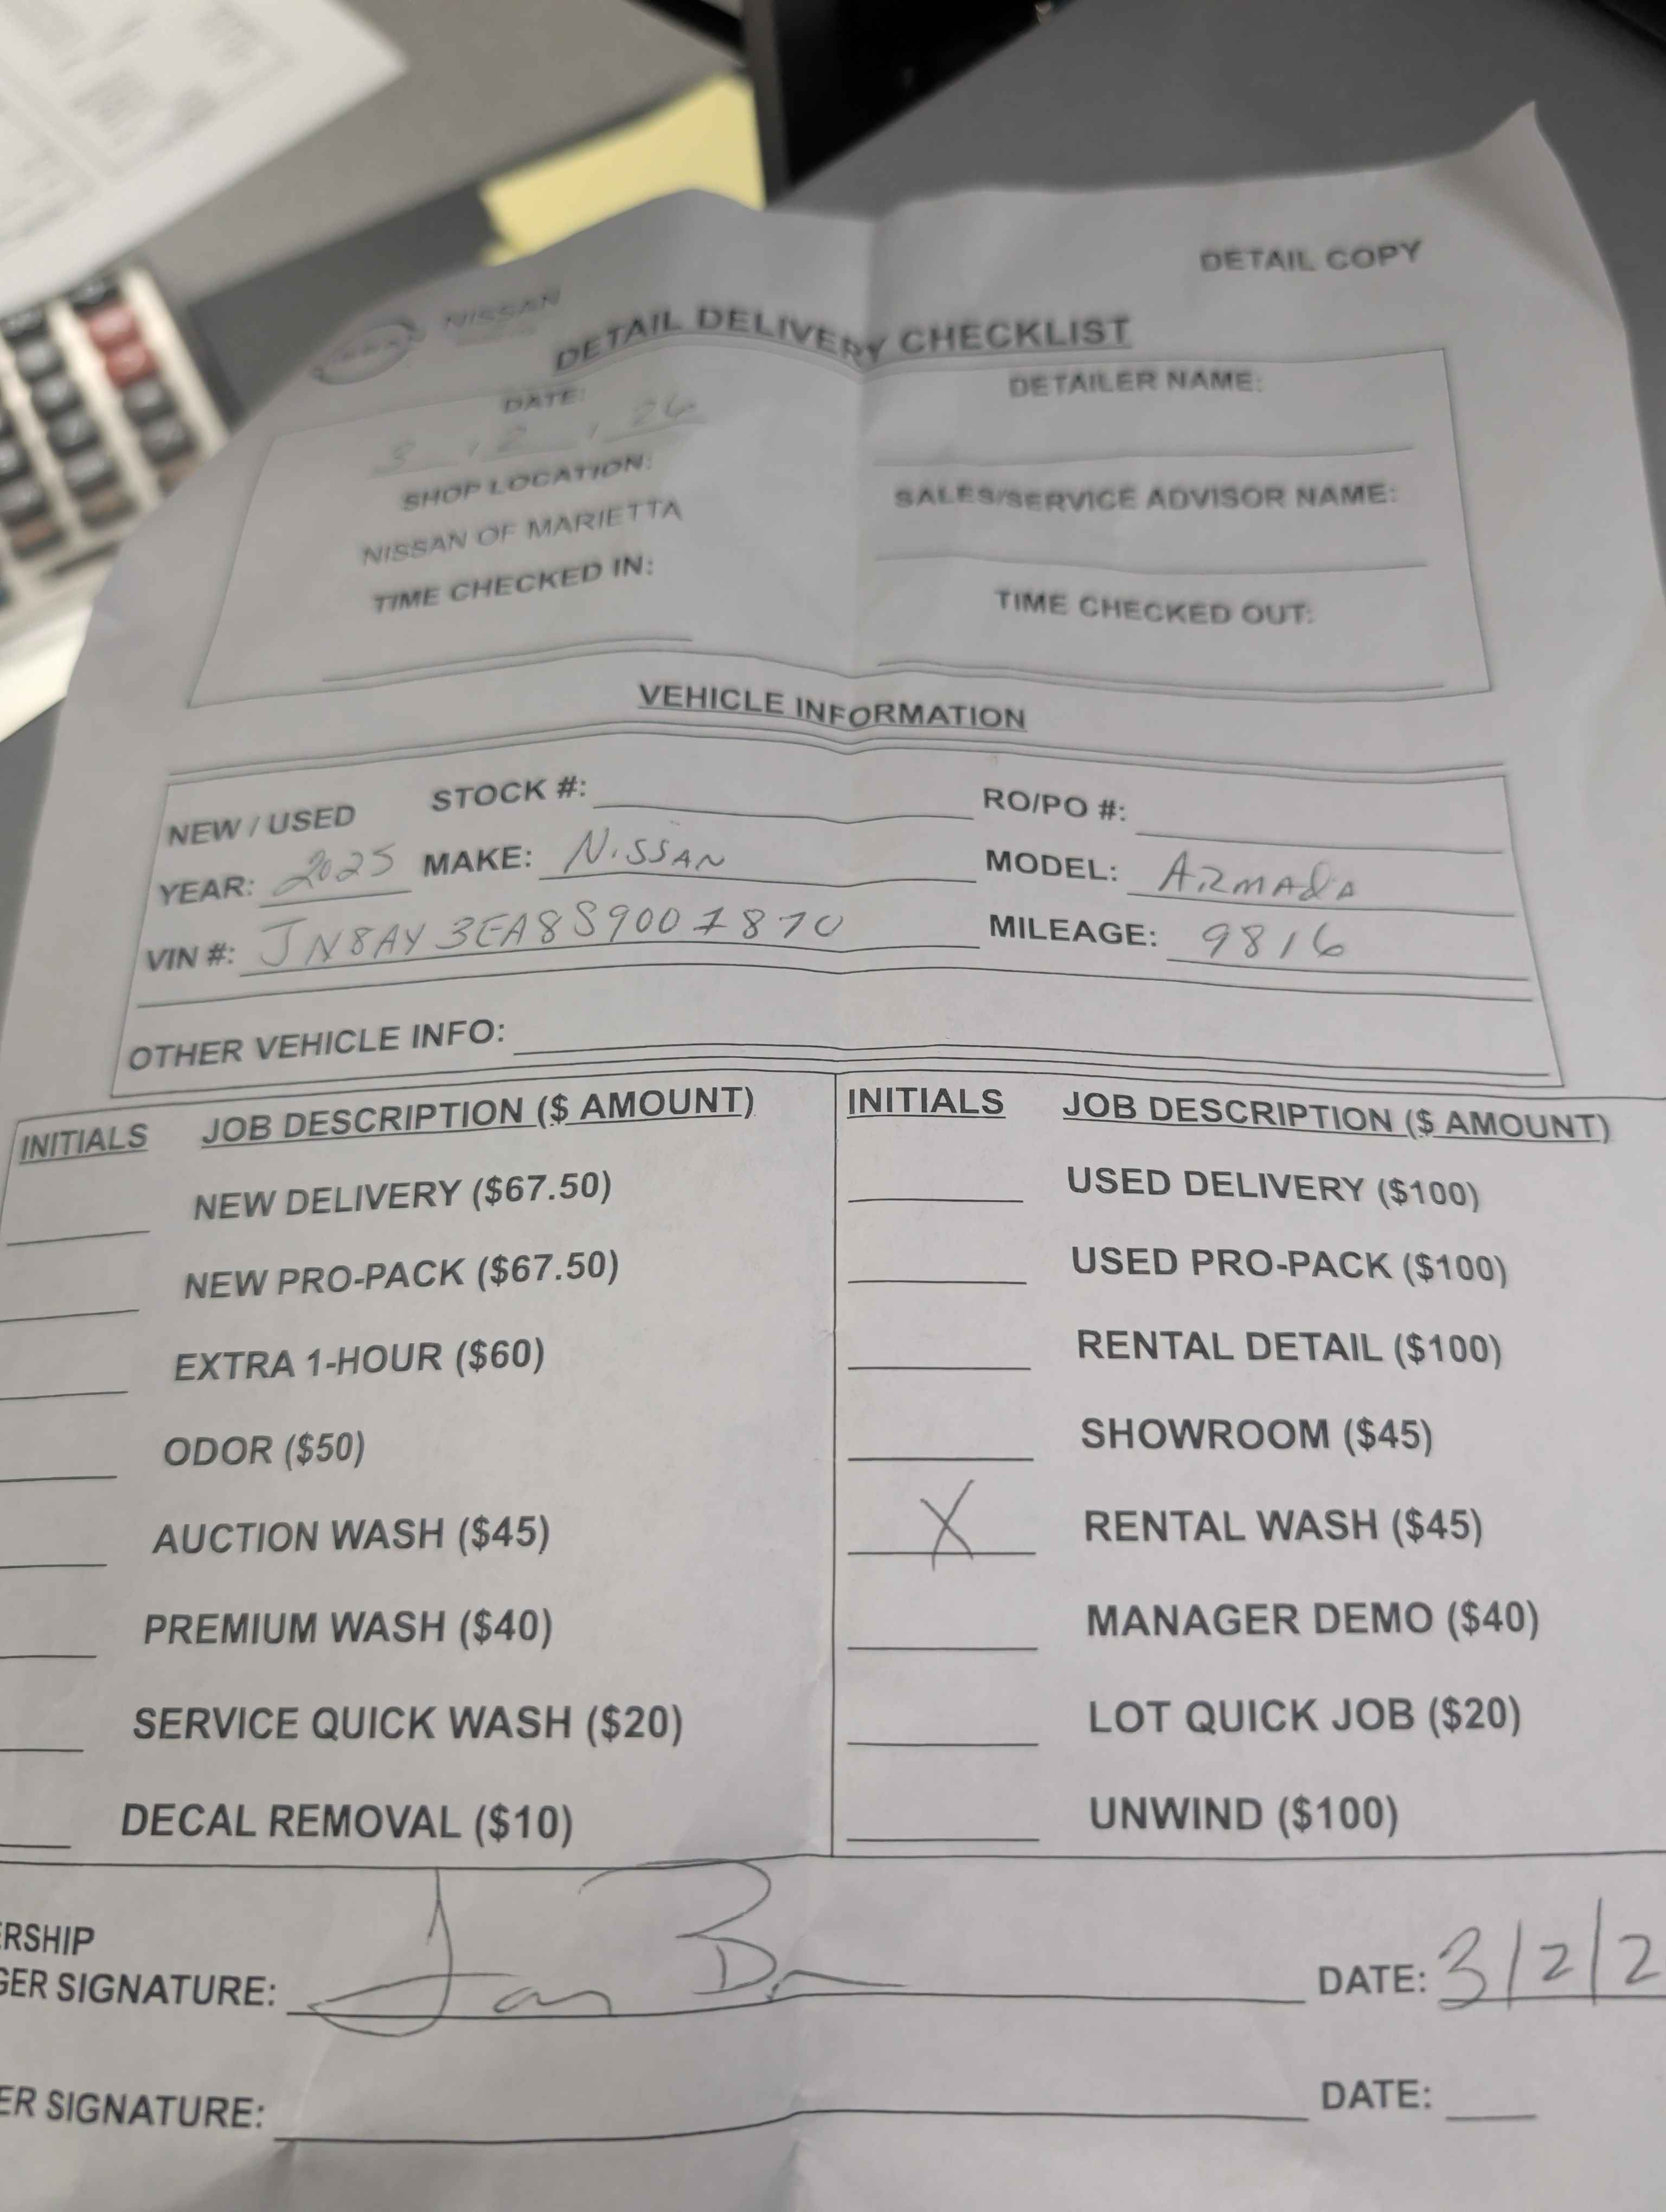 DETAIL COPY
NISSAN
DETAIL DELIVERY CHECKLIST
DATE:
3 , 2 , 26
SHOP LOCATION:
NISSAN OF MARIETTA
TIME CHECKED IN:
DETAILER NAME:
SALES/SERVICE ADVISOR NAME:
TIME CHECKED OUT:
VEHICLE INFORMATION
NEW / USED STOCK #: RO/PO #:
YEAR: 2025 MAKE: NISSAN MODEL: ARMADA
VIN #: JN8AY3EA8S9007870 MILEAGE: 9816
OTHER VEHICLE INFO:
INITIALS JOB DESCRIPTION ($ AMOUNT)
NEW DELIVERY ($67.50)
NEW PRO-PACK ($67.50)
EXTRA 1-HOUR ($60)
ODOR ($50)
AUCTION WASH ($45)
PREMIUM WASH ($40)
SERVICE QUICK WASH ($20)
DECAL REMOVAL ($10)
INITIALS JOB DESCRIPTION ($ AMOUNT)
USED DELIVERY ($100)
USED PRO-PACK ($100)
RENTAL DETAIL ($100)
SHOWROOM ($45)
X RENTAL WASH ($45)
MANAGER DEMO ($40)
LOT QUICK JOB ($20)
UNWIND ($100)
ERSHIP
GER SIGNATURE: DATE: 3/2/2
ER SIGNATURE: DATE: